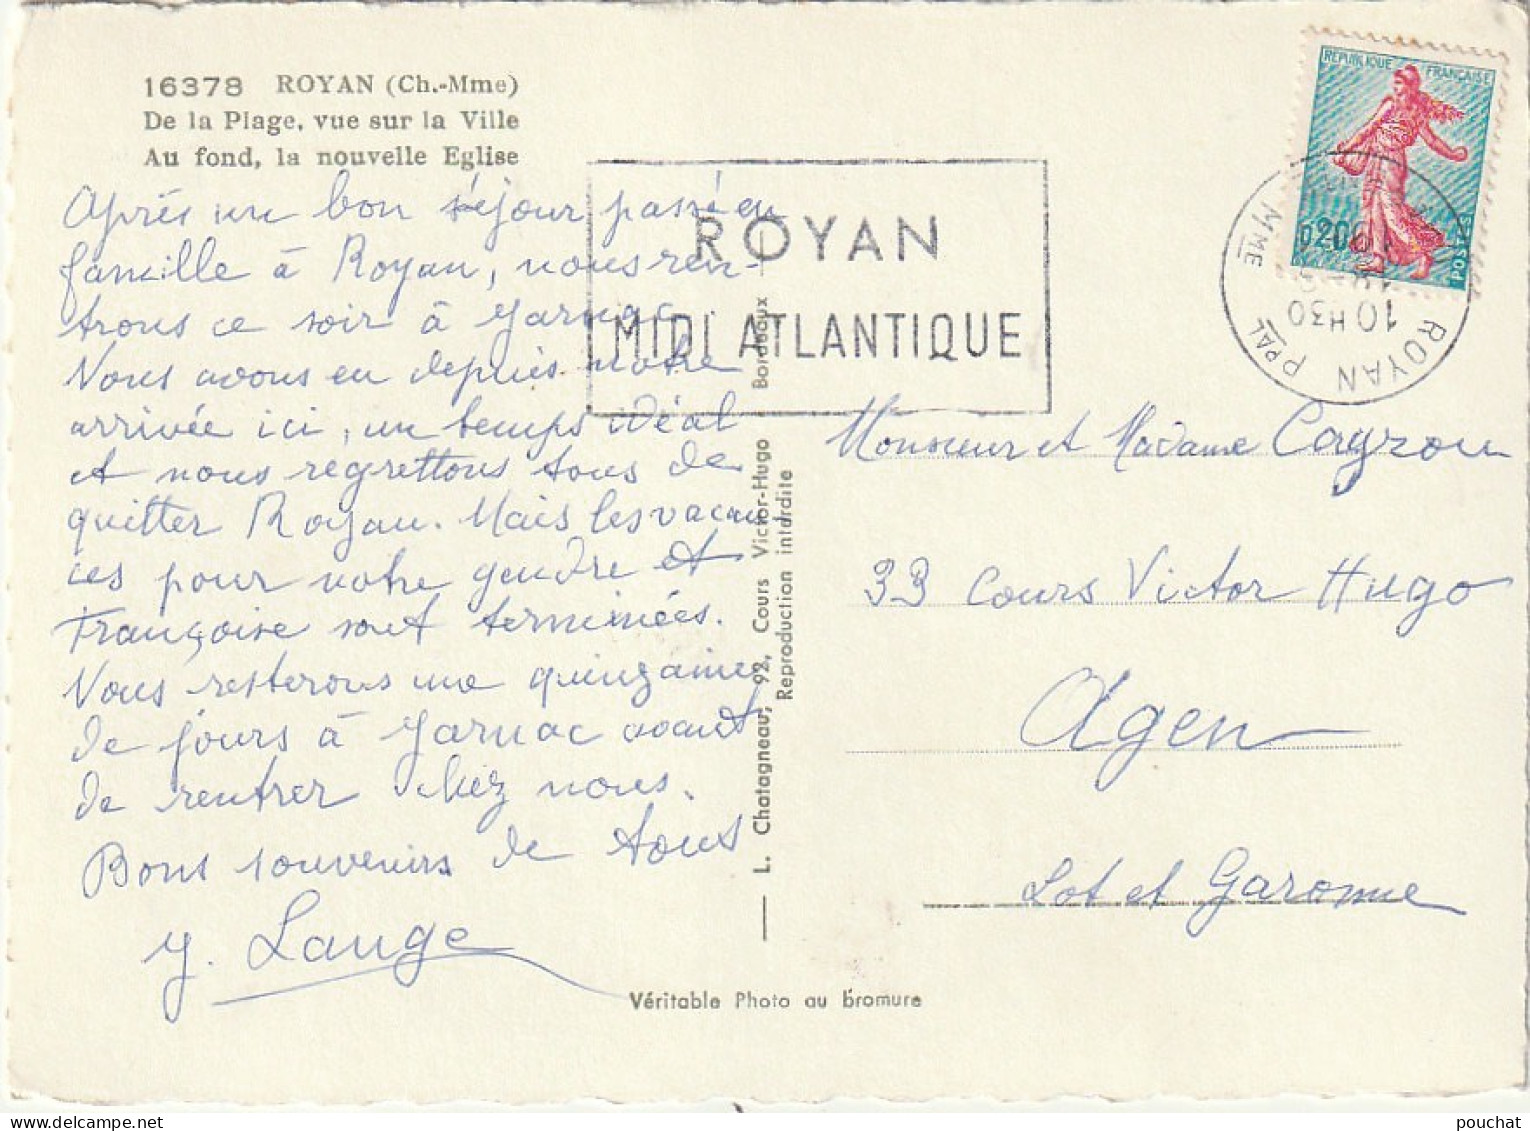 16378 ROYAN (Ch.-Mme)
De la Plage, vue sur la Ville
Au fond, la nouvelle Eglise
Après un bon séjour passé en
famille à Royan, nous ren-
trons ce soir à Jarnac.
Nous avons eu depuis notre
arrivée ici, un temps idéal
et nous regrettons tous de
quitter Royan. Mais les vacan
ces pour notre gendre et
Françoise sont terminées.
Nous resterons une quinzaine
de jours à Jarnac avant
de rentrer chez nous.
Bons souvenirs de tous
Y. Lauge
ROYAN
MIDI ATLANTIQUE
L. Chatagneau, 92, Cours Victor-Hugo Bordeaux
Reproduction interdite
Véritable Photo au bromure
REPUBLIQUE FRANÇAISE
0,20
POSTES
ROYAN PPAL
10H30
MME
Monsieur et Madame Cayrou
33 Cours Victor Hugo
Agen
Lot et Garonne
pouchat